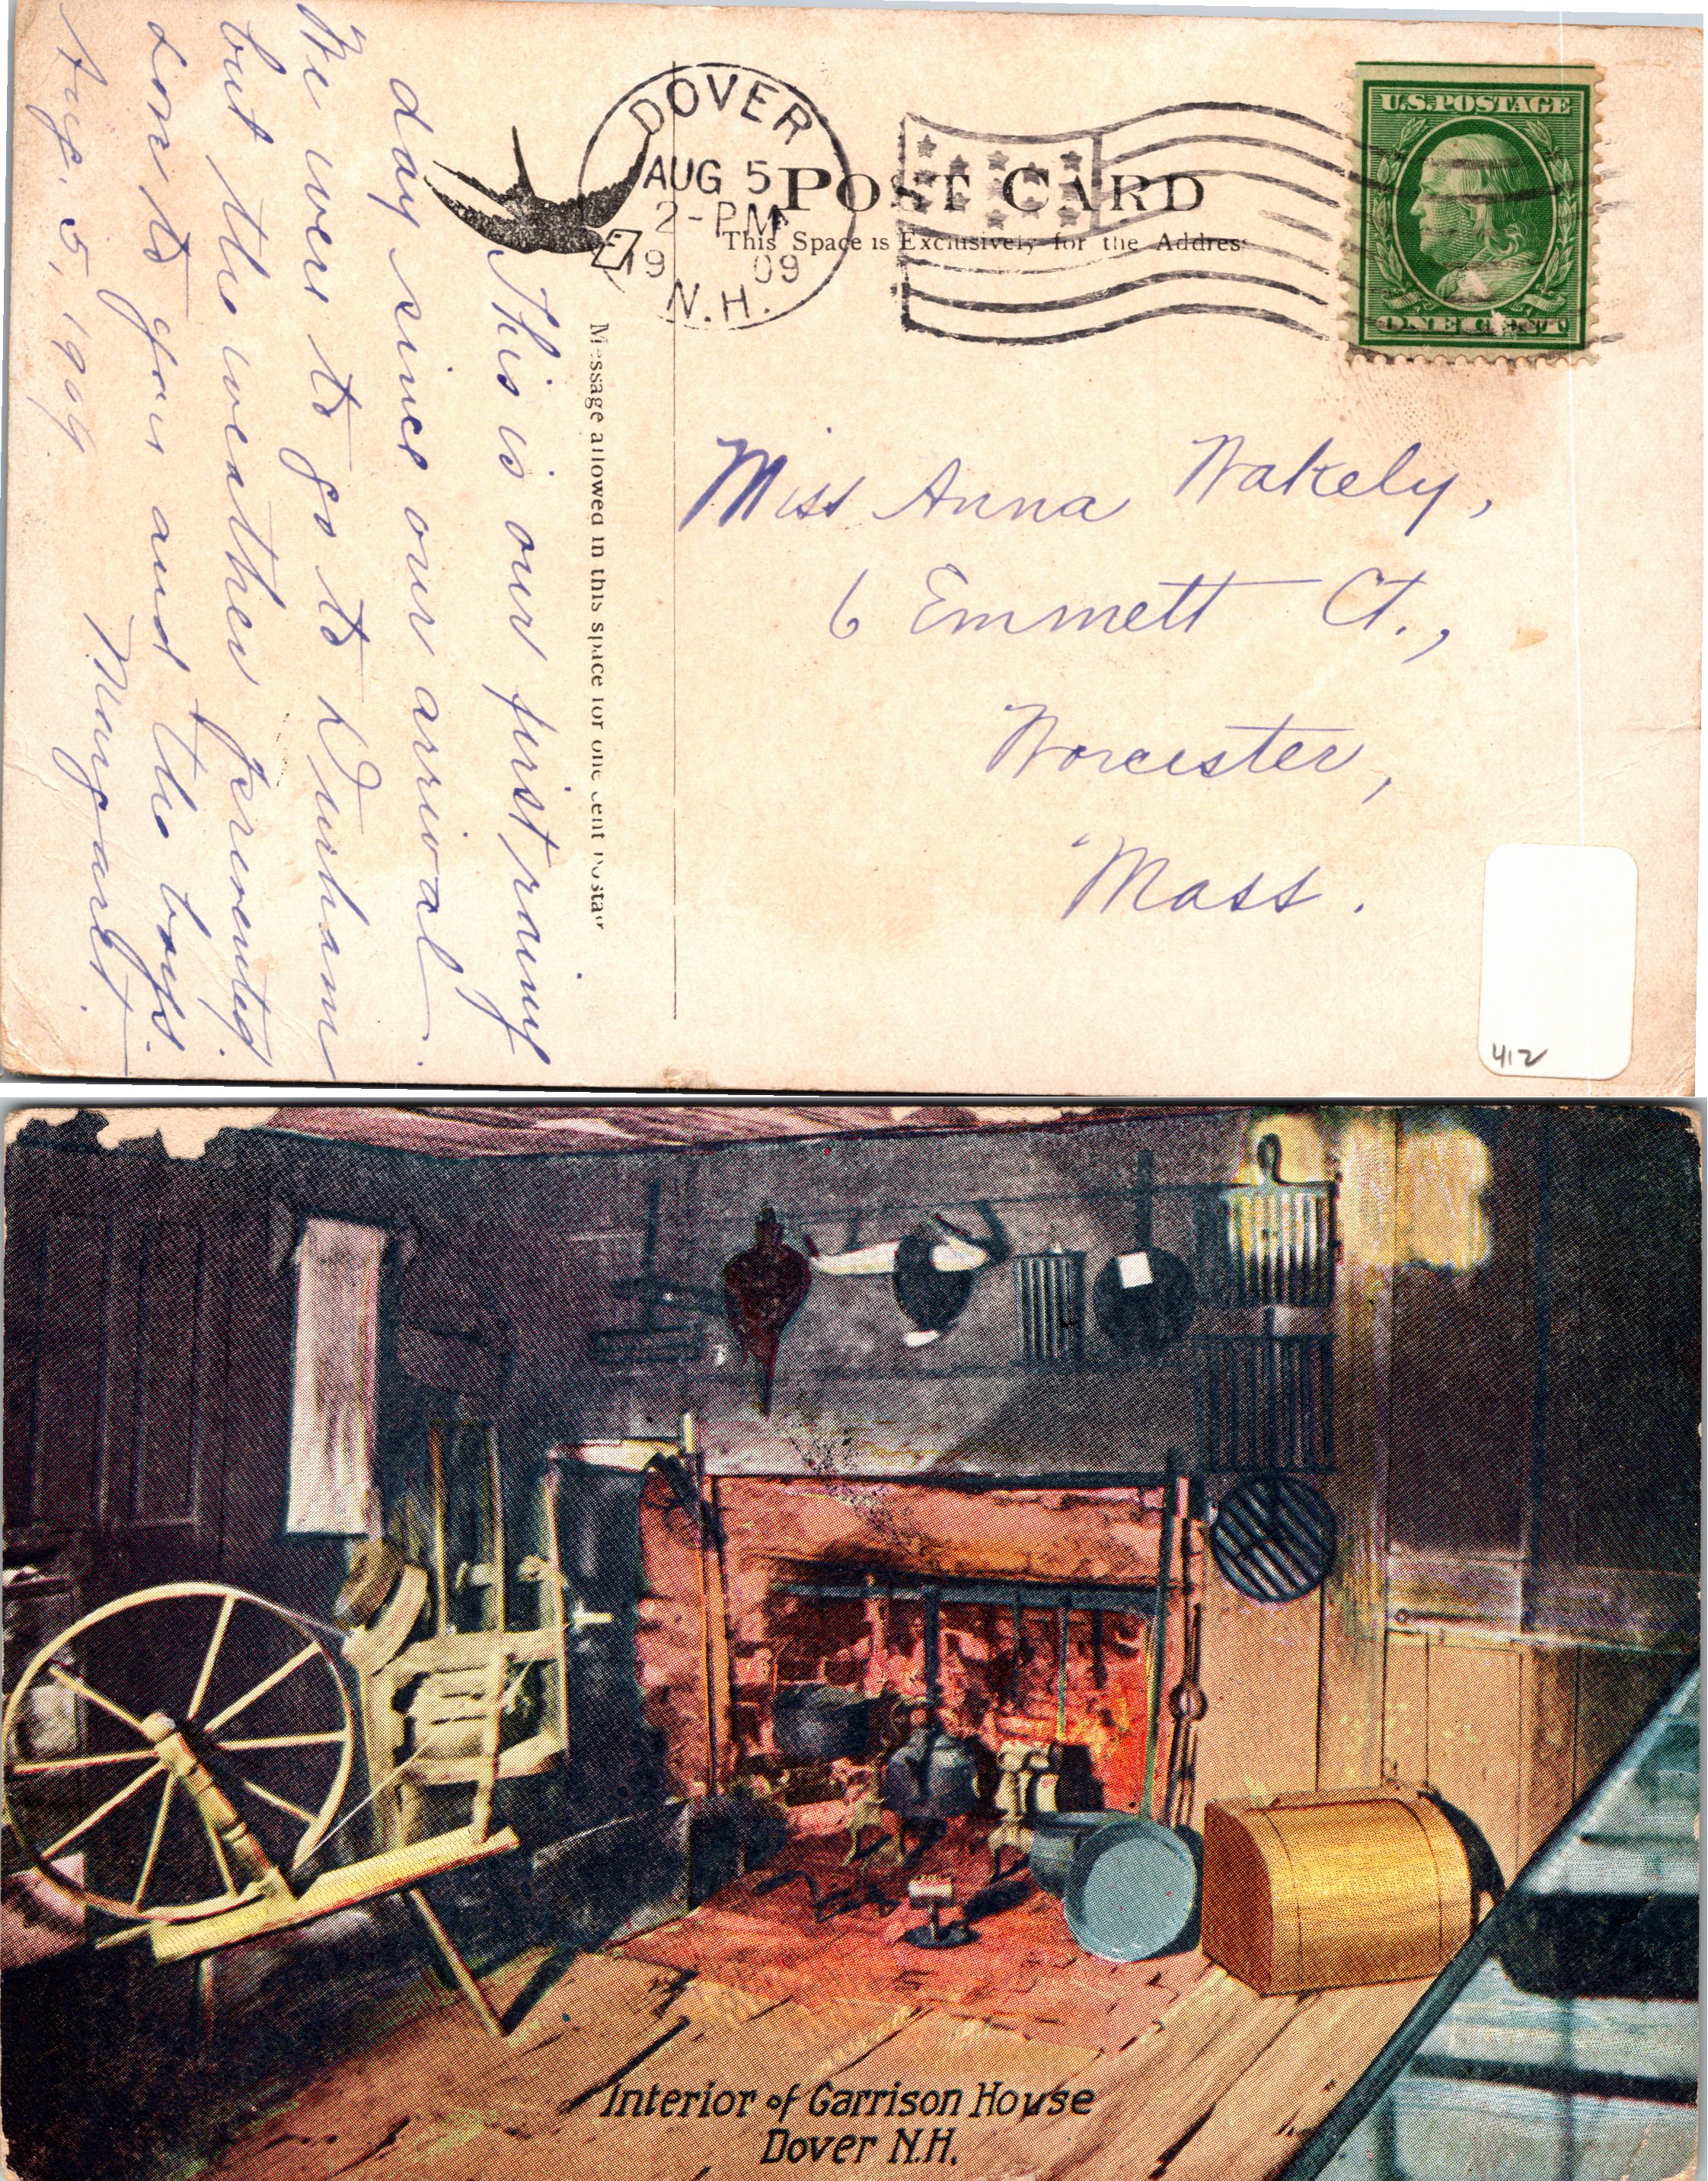 DOVER
AUG 5
2-PM
19 09
N.H.
POST CARD
This Space is Exclusively for the Address
U.S. POSTAGE
ONE CENT
Message allowed in this space for one cent Posta
This is our first rainy
day since our arrival.
We were to go to Durham
but the weather prevented.
Love to you and the boys.
Margaret.
Aug. 5, 1909
Miss Anna Wakely,
6 Emmett Ct.,
Worcester,
Mass.
412
Interior of Garrison House
Dover N.H.